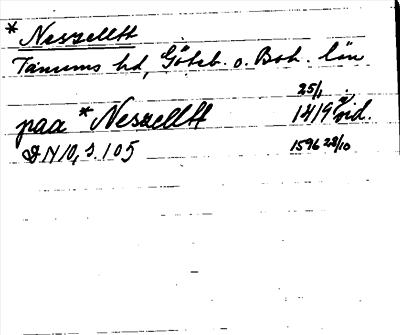 * Neszellt
Tanums hd, Göteb. o. Boh. län
paa * Neszellt 25/1 1419 vid.
DN 10, s. 105 1596 28/10